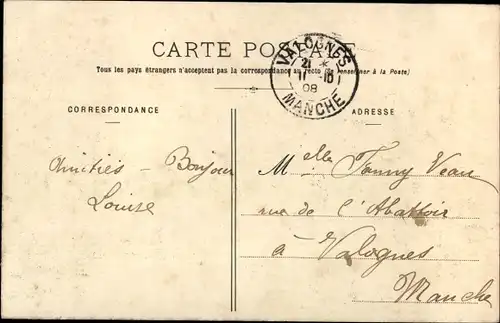 CARTE POSTALE
Tous les pays étrangers n'acceptent pas la correspondance au recto (Se renseigner à la Poste)
VALOGNES
21 *
11 - 10
08
MANCHE
CORRESPONDANCE
ADRESSE
Amitiés - Bonjour
Louise
Melle Fanny Veau
rue de l'Abattoir
à Valognes
Manche